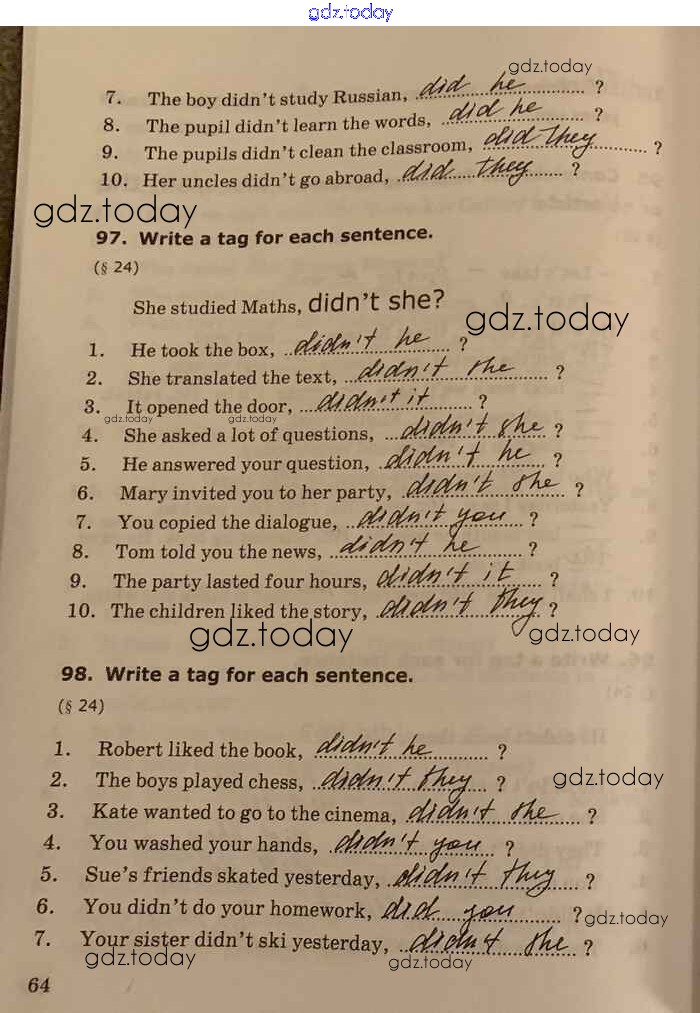 gdz.today
gdz.today
7. The boy didn't study Russian, did he ?
8. The pupil didn't learn the words, did he ?
9. The pupils didn't clean the classroom, did they ?
10. Her uncles didn't go abroad, did they ?
gdz.today
97. Write a tag for each sentence.
(§ 24)
She studied Maths, didn't she?
gdz.today
1. He took the box, didn't he ?
2. She translated the text, didn't she ?
3. It opened the door, didn't it ?
gdz.today gdz.today
4. She asked a lot of questions, didn't she ?
5. He answered your question, didn't he ?
6. Mary invited you to her party, didn't she ?
7. You copied the dialogue, didn't you ?
8. Tom told you the news, didn't he ?
9. The party lasted four hours, didn't it ?
10. The children liked the story, didn't they ?
gdz.today gdz.today
98. Write a tag for each sentence.
(§ 24)
1. Robert liked the book, didn't he ?
2. The boys played chess, didn't they ?
gdz.today
3. Kate wanted to go to the cinema, didn't she ?
4. You washed your hands, didn't you ?
5. Sue's friends skated yesterday, didn't they ?
6. You didn't do your homework, did you ?
gdz.today
7. Your sister didn't ski yesterday, didn't she ?
gdz.today gdz.today
64